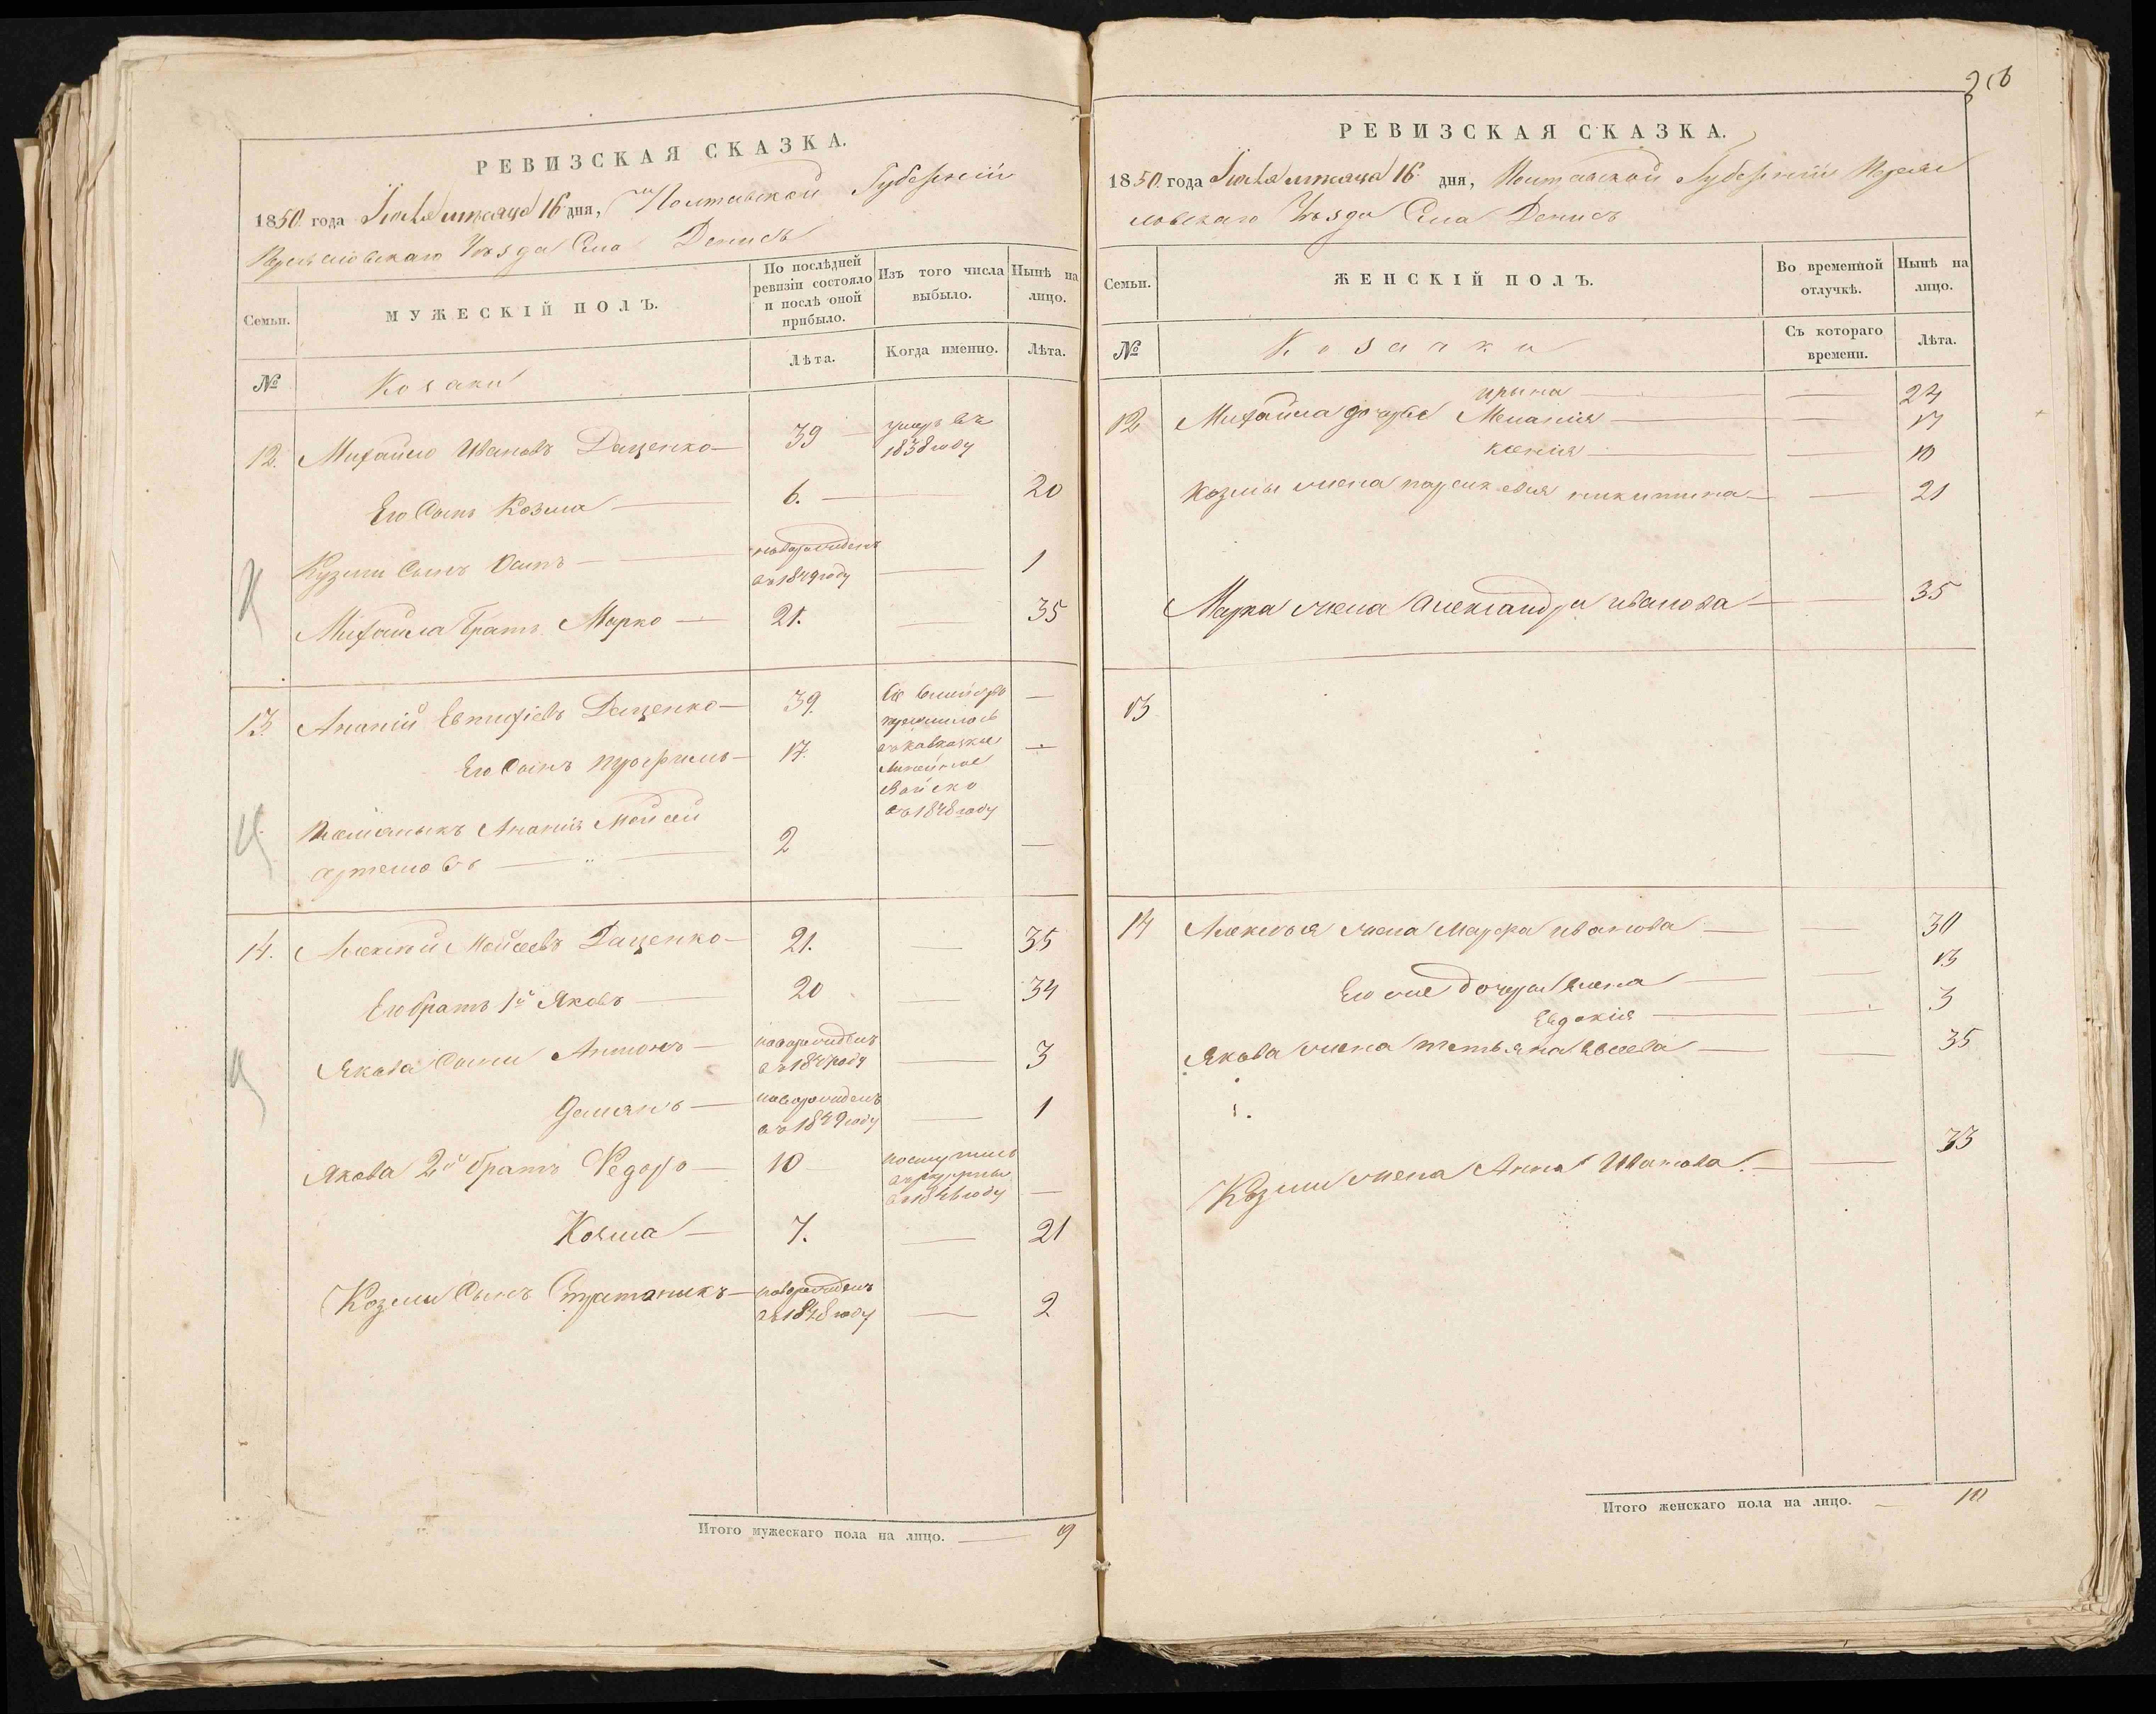 РЕВИЗСКАЯ СКАЗКА.
1850 года Іюля мѣсяца 16 дня, Полтавской Губерніи
Переясловскаго Уѣзда Села Денисъ
Семьи.
МУЖЕСКІЙ ПОЛЪ.
По послѣдней ревизіи состояло и послѣ оной прибыло.
Изъ того числа выбыло.
Нынѣ на лицо.
№
Козаки
Лѣта.
Когда именно.
Лѣта.
12. Михайло Ивановъ Даценко 39 умеръ въ 1838 году
Его Сынъ Козма 6. 20
Кузмы Сынъ Осипъ новорожденъ въ 1849 году 1
Михайла Братъ Марко 21. 35
13. Ананій Евтифіевъ Даценко 39.
Его Сынъ Трофимъ 17.
въ Кавказкое Линейное Войско въ 1848 году
Племяныкъ Ананія Мойсей
Артемовъ 2
14. Алексей Мойсеевъ Даценко 21. 35
Его братъ 1й Яковъ 20 34
Якова Сыны Антонъ новорожденъ въ 1847 году 3
Демянъ новорожденъ въ 1849 году 1
Якова 2й братъ Федоръ 10 поступилъ въ рекруты въ 1846 году
Козма 7. 21
Козмы Сынъ Стратоникъ новорожденъ въ 1848 году 2
Итого мужескаго пола на лицо. 9
РЕВИЗСКАЯ СКАЗКА.
1850 года Іюля мѣсяца 16 дня, Полтавской Губерніи Переяс
ловскаго Уѣзда Села Денисъ
Семьи.
ЖЕНСКІЙ ПОЛЪ.
Во временной отлучкѣ.
Нынѣ на лицо.
№
Козачки
Съ котораго времени.
Лѣта.
ирына
12 Михайла дочери Меланія 17
ксенія 10
Козмы жена параскевія никитина 21
Марка жена Александра иванова 35
13
14 Алексѣя жена Марфа иванова 30
Его же дочери Елена 13
Евдокія 3
Якова жена татьяна Евсеева 35
Козмы жена Анна Иванова. 33
Итого женскаго пола на лицо. 10